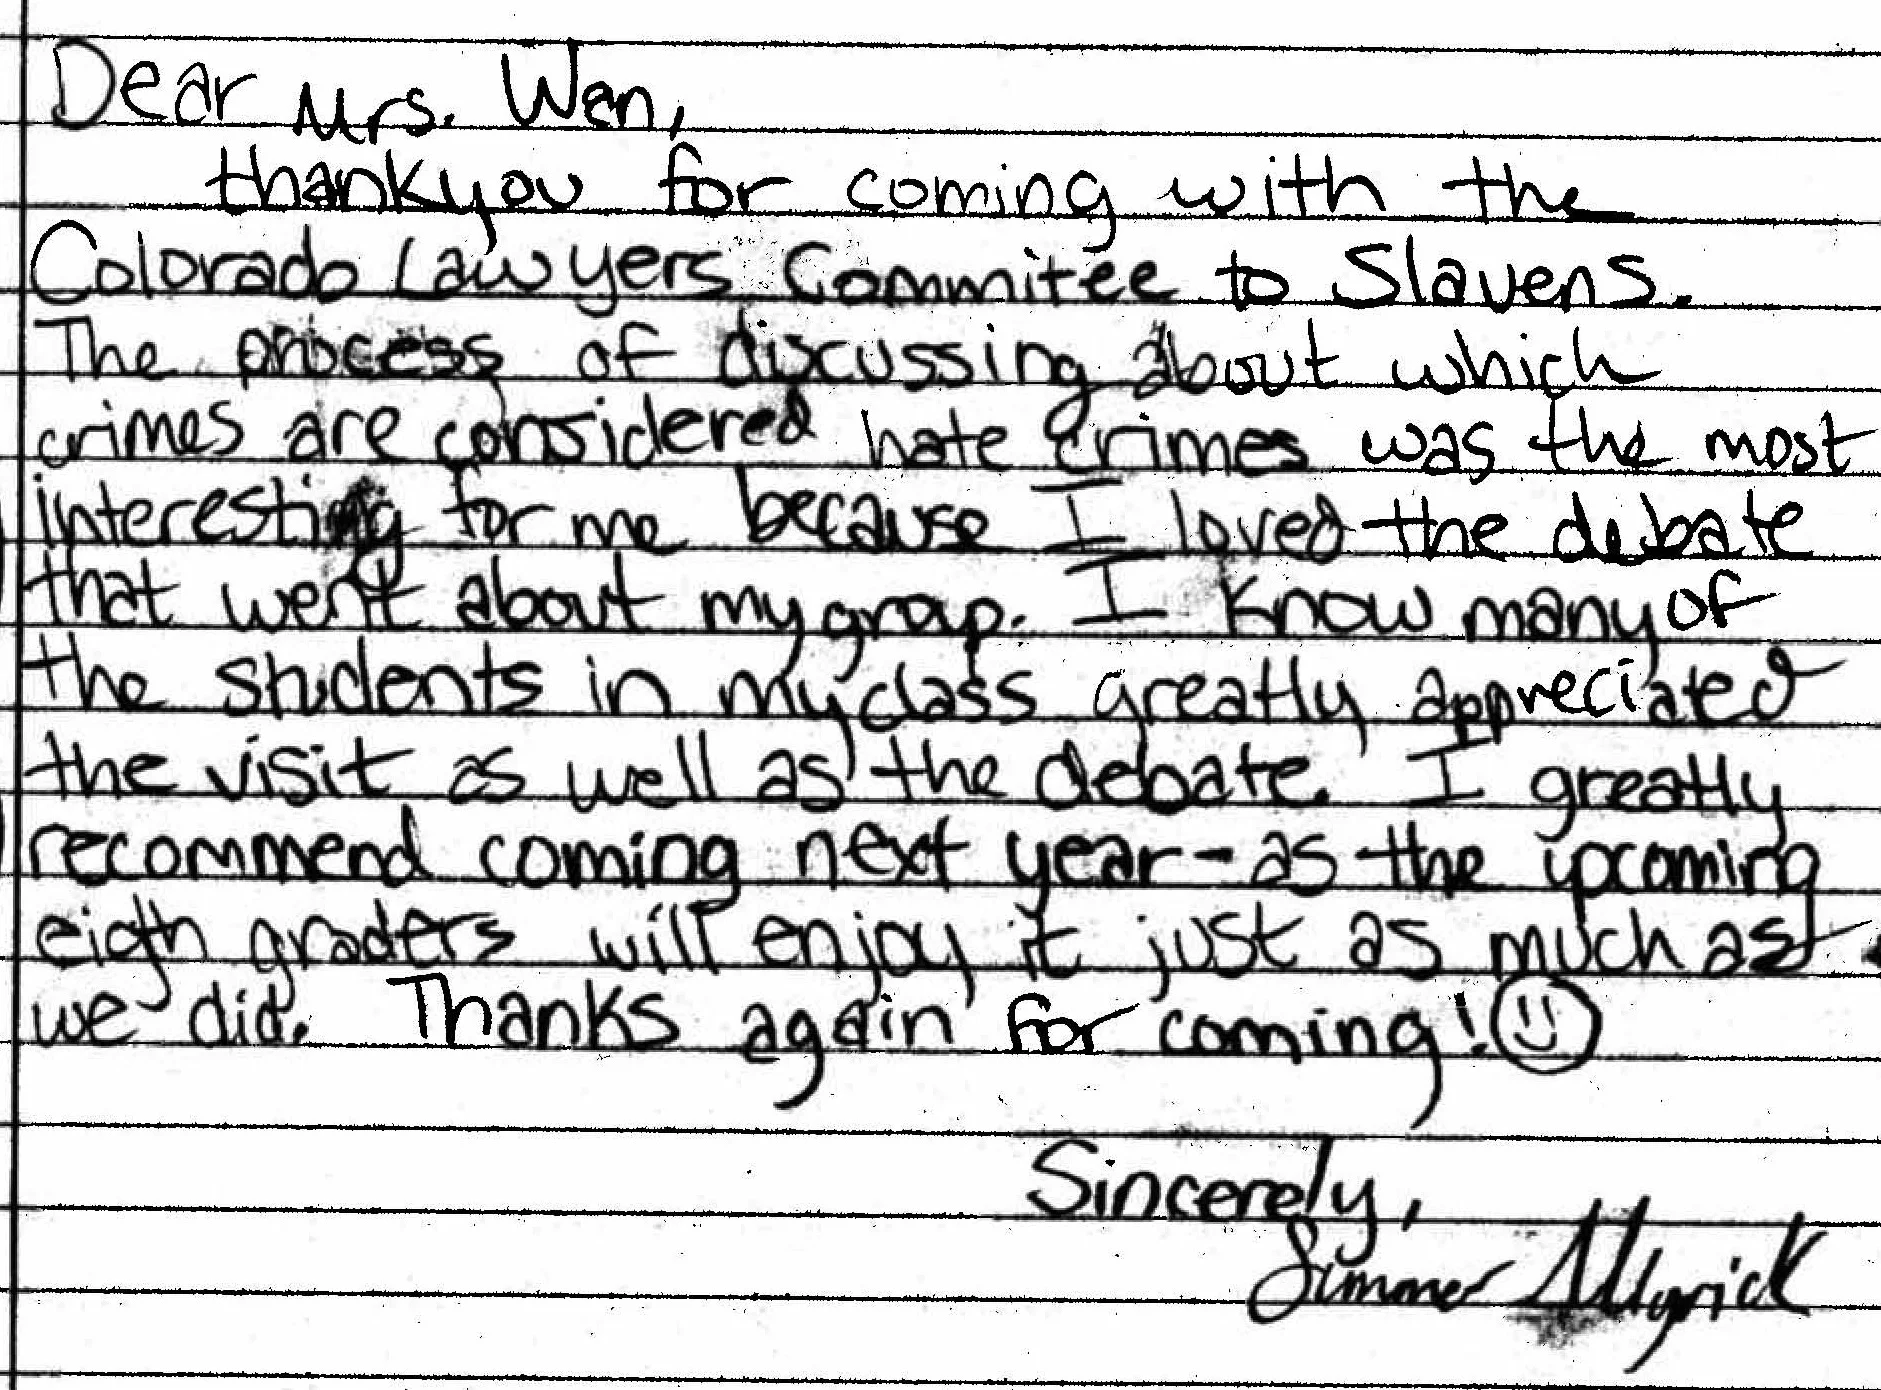 Dear Mrs. Wen,
thankyou for coming with the
Colorado Lawyers Commitee to Slavens.
The process of discussing about which
crimes are considered hate crimes was the most
interesting for me because I loved the debate
that went about my group. I know many of
the students in my class greatly appreciated
the visit as well as the debate. I greatly
recommend coming next year-as the upcoming
eigth graders will enjoy it just as much as
we did. Thanks again for coming!
Sincerely,
Summer